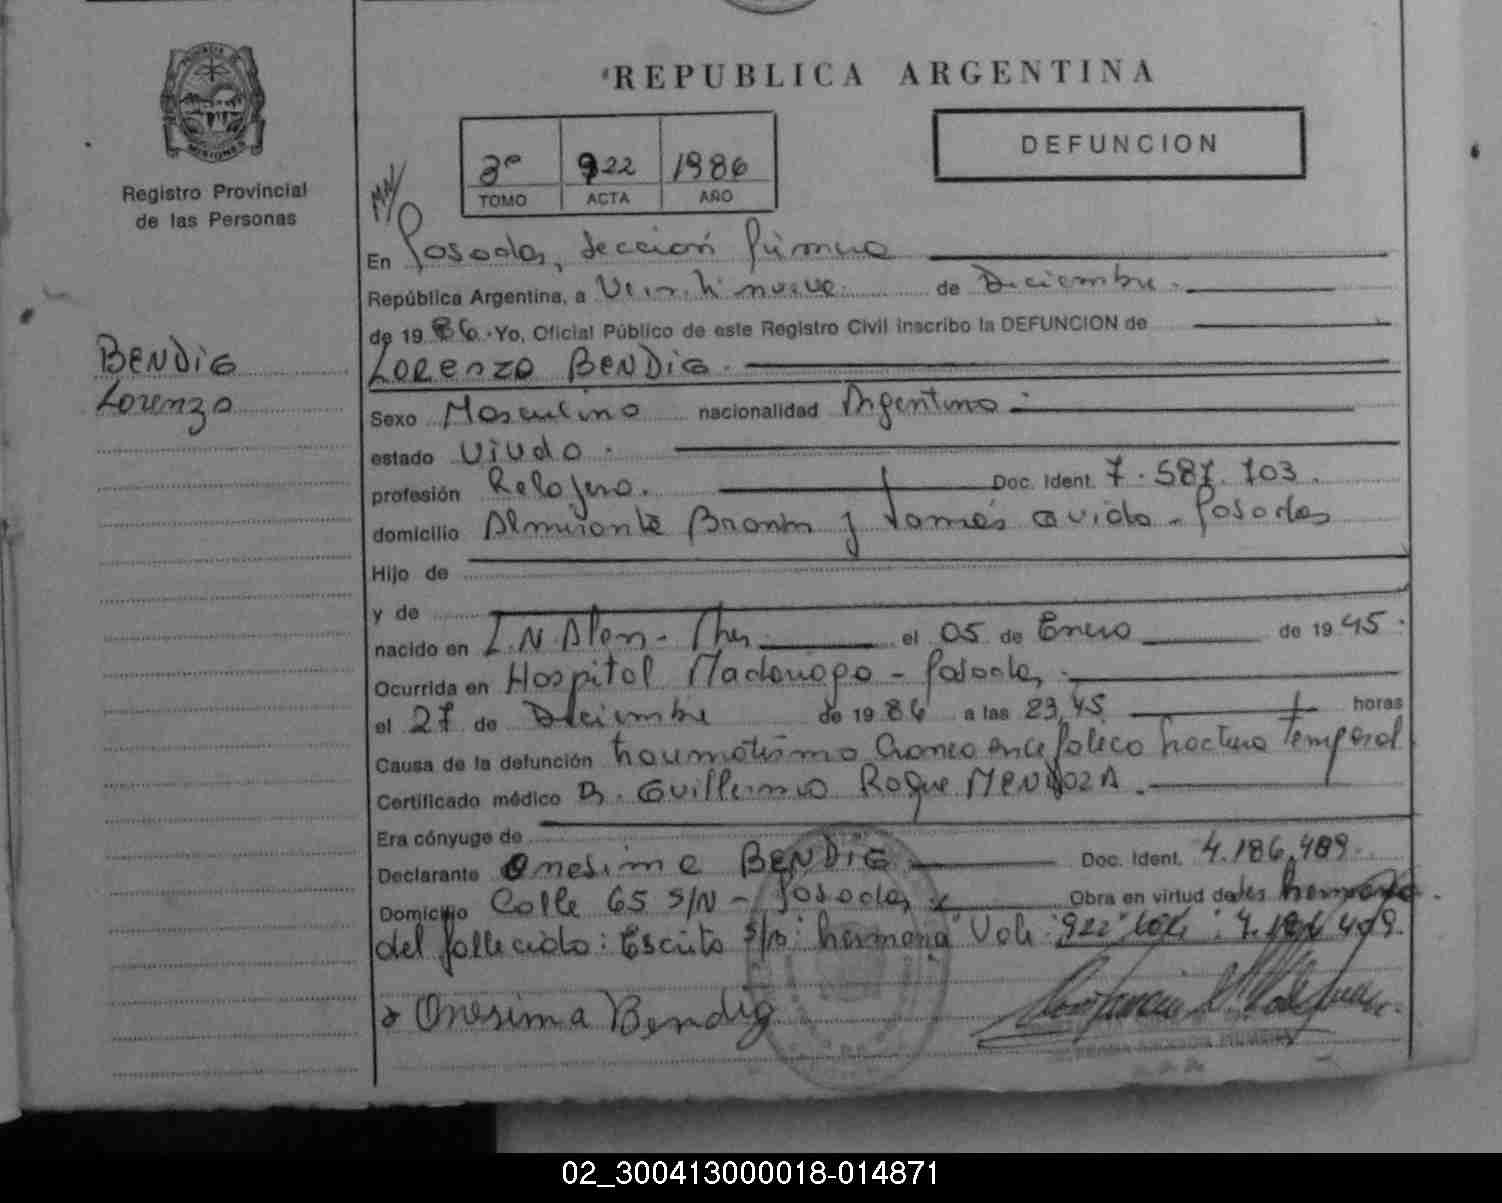 REPUBLICA ARGENTINA
PROVINCIA DE
MISIONES
Registro Provincial
de las Personas
3º 922 1986
TOMO ACTA AÑO
DEFUNCION
BENDIG
Lorenzo
En Posadas, Sección Primera
República Argentina, a Veintinueve de Diciembre
de 1986. Yo, Oficial Público de este Registro Civil inscribo la DEFUNCION de
Lorenzo BENDIG.
Sexo Masculino nacionalidad Argentino
estado Viudo.
profesión Relojero. Doc. Ident. 7.587.703.
domicilio Almirante Brown y Tomás Guido - Posadas
Hijo de
y de
nacido en L.N. Alem - Mnes. el 05 de Enero de 1945.
Ocurrida en Hospital Madariaga - Posadas,
el 27 de Diciembre de 1986 a las 23,45 horas
Causa de la defunción traumatismo Craneo encefalico fractura Temporal
Certificado médico Dr. Guillermo Roque MENDOZA.
Era cónyuge de
Declarante Onesima BENDIG Doc. Ident. 4.186.409.
Domicilio Calle 65 S/N - Posadas Obra en virtud de ser hermana
del fallecido: Escrito s/r: "hermana" Vale: "922" Vale: 4.186.409.
Onesima Bendig
02_300413000018-014871